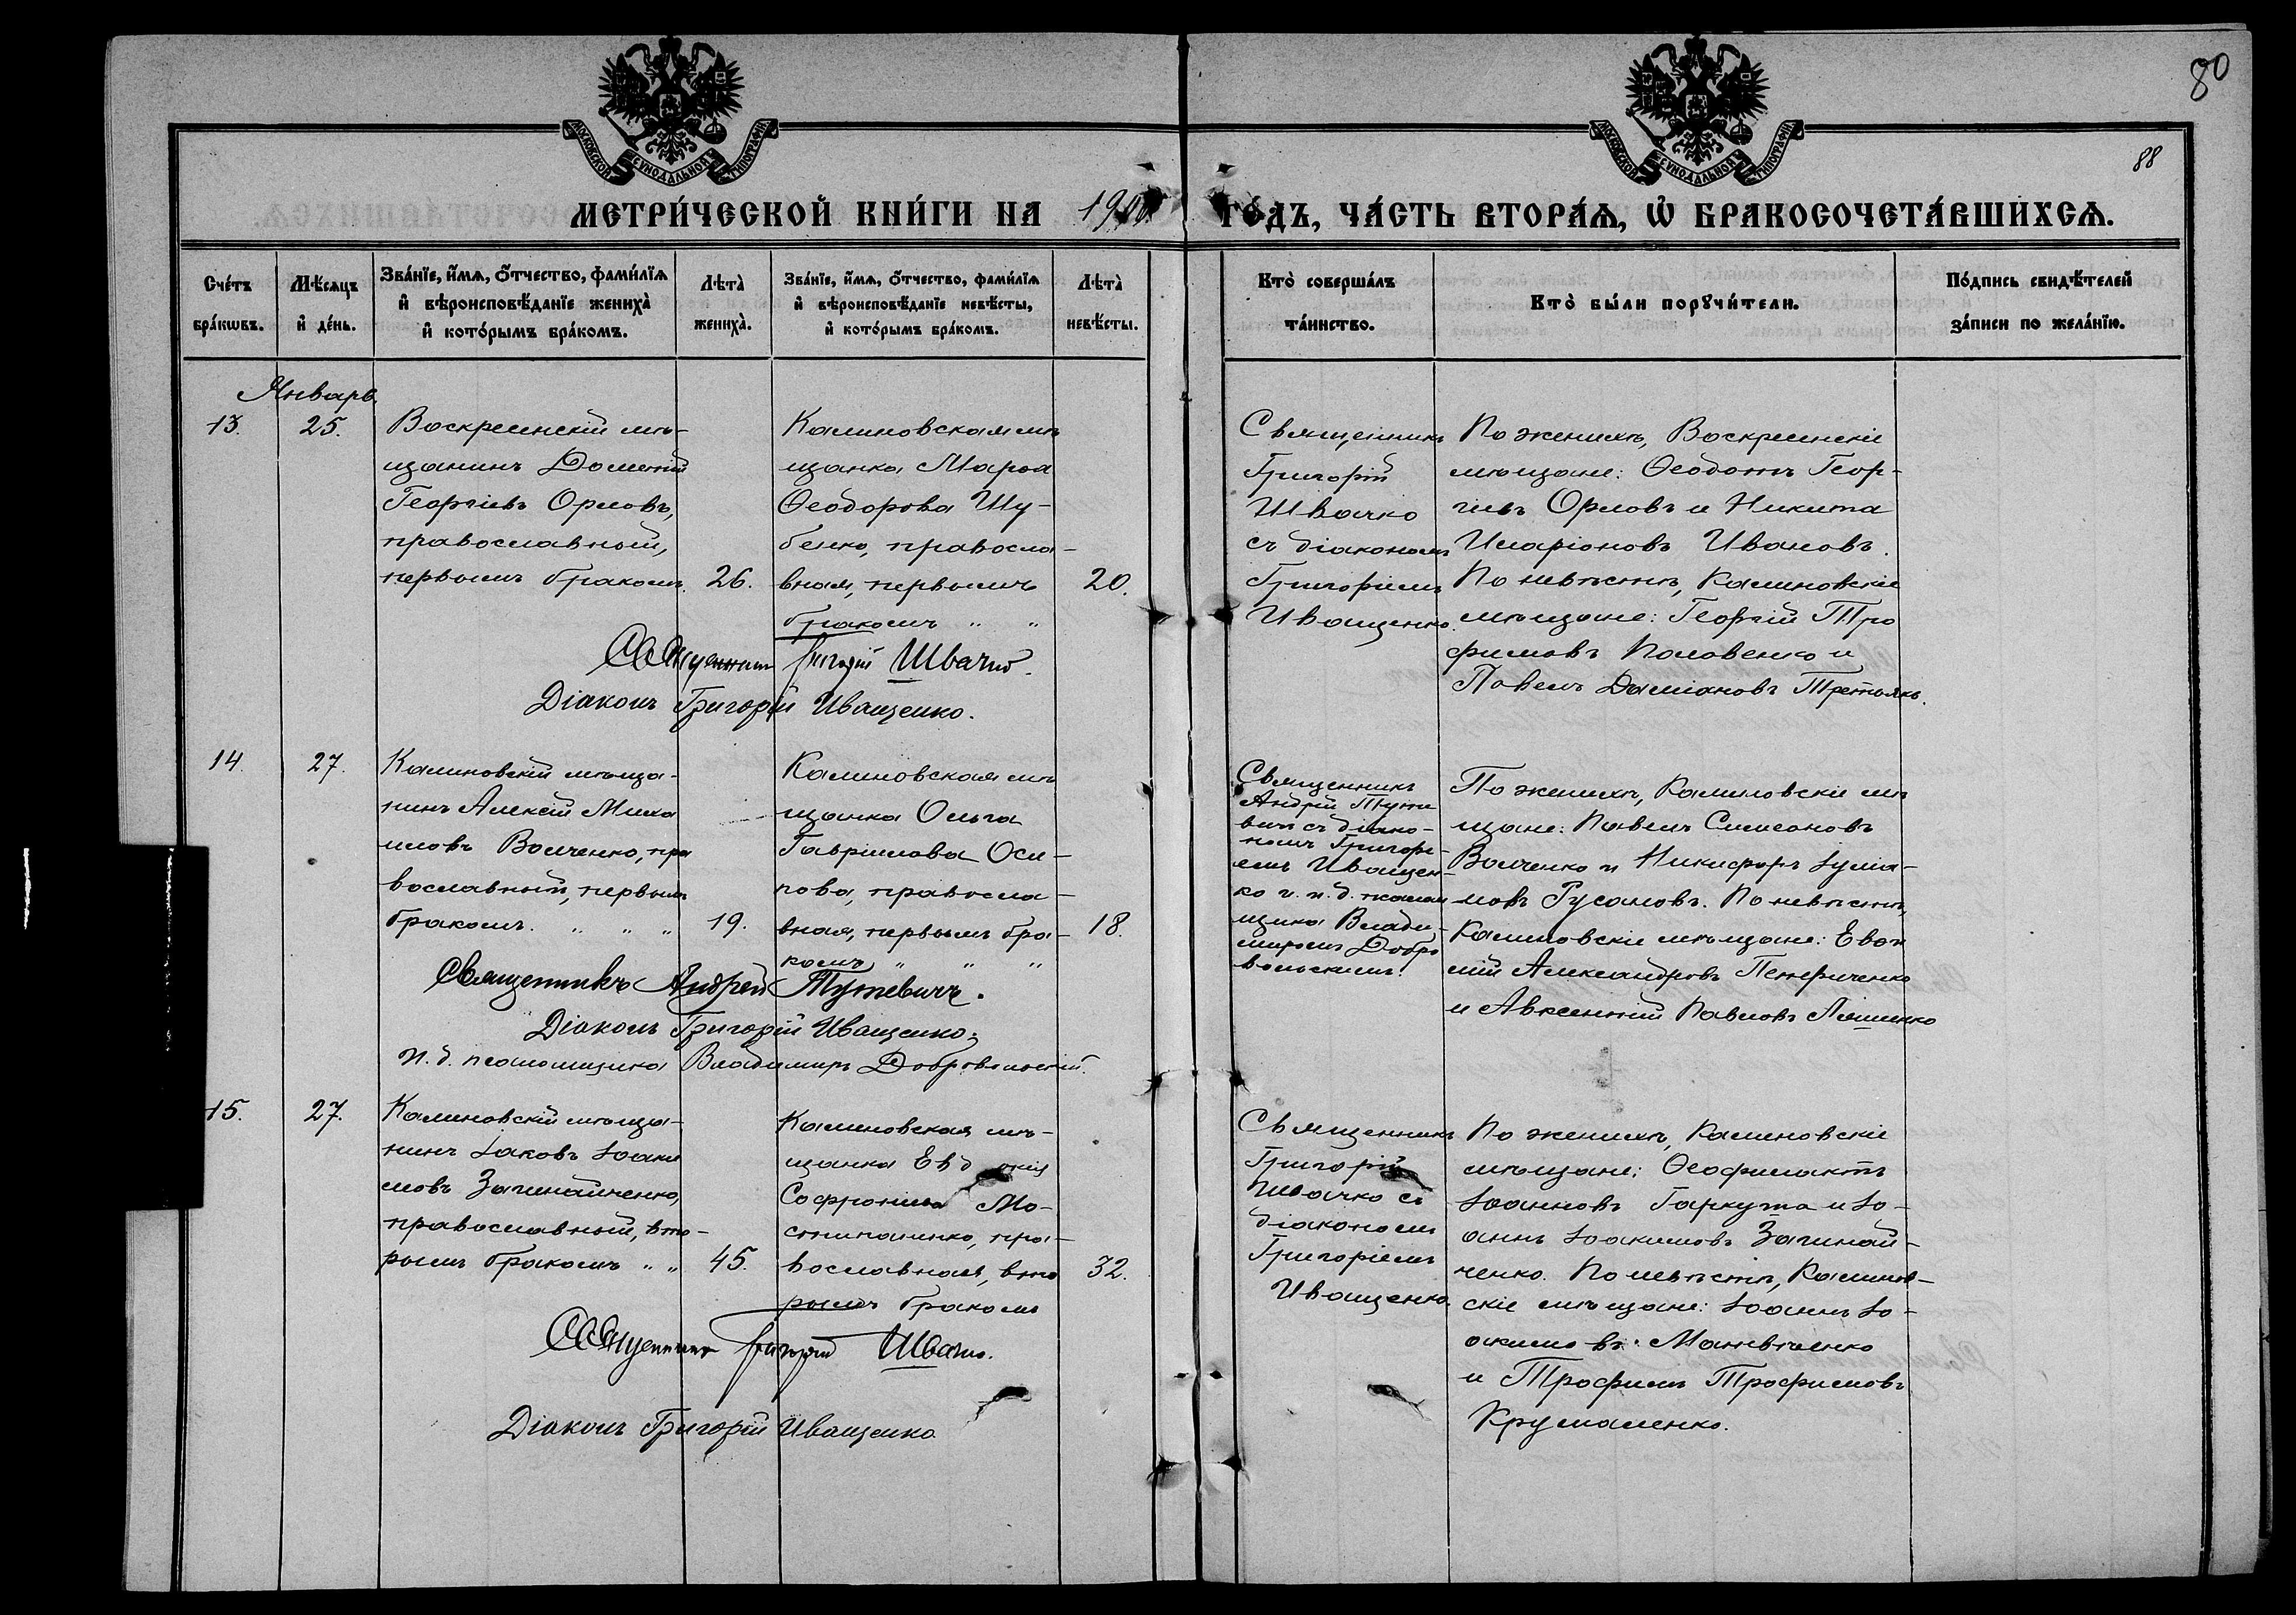 80
88
МОСКОВСКОЙ СѴНОДАЛЬНОЙ ТИПОГРАФІИ
МОСКОВСКОЙ СѴНОДАЛЬНОЙ ТИПОГРАФІИ
МЕТРИ́ЧЕСКОЙ КНИ́ГИ НА 1900 ГО́ДЪ, ЧА́СТЬ ВТОРА́Ѧ, Ѡ҆ БРАКОСОЧЕТА́ВШИХСѦ.
Сче́тъ бра́кѡвъ.
Мѣ́сяцъ и҆ де́нь.
Зва́нїе, и҆́мѧ, о҆́тчество, фами́лїѧ
и҆ вѣроисповѣ́данїе жениха̀
и҆ кото́рымъ бра́комъ.
Лѣта̀ жениха̀.
Зва́нїе, и҆́мѧ, о҆́тчество, фами́лїѧ
и҆ вѣроисповѣ́данїе невѣ́сты,
и҆ кото́рымъ бра́комъ.
Лѣта̀ невѣ́сты.
Кто̀ соверша́лъ
та́инство.
Кто̀ бы́ли порꙋчи́тели.
По́дпись свидѣ́телей
за́писи по жела́нїю.
Январь.
13.
25.
Воскресенскій мѣ-
щанинъ Дометій
Георгіевъ Орловъ,
православный,
первымъ бракомъ.
26.
Калиновская мѣ
щанка Марѳа
Ѳеодорова Шу-
бенко, правосла-
вная, первымъ
бракомъ " "
20.
Священникъ
Григорій
Швачко
съ діакономъ
Григоріемъ
Иващенко.
По женихѣ, Воскресенскіе
мѣщане: Ѳеодотъ Геор-
гіевъ Орловъ и Никита
Иларіоновъ Ивановъ.
По невѣстѣ, Калиновскіе
мѣщане: Георгій Тро
фимовъ Половенко и
Павелъ Даміановъ Третьякъ.
Священникъ Григорій Швачко.
Діаконъ Григорій Иващенко.
14.
27.
Калиновскій мѣща-
нинъ Алексій Миха
иловъ Волченко, пра
вославный, первымъ
бракомъ. " " "
19.
Калиновская мѣ
щанка Ольга
Гавріилова Оси-
пова, правосла-
вная, первымъ бра-
комъ " " "
18.
Священникъ
Андрей Туте
вичъ съ діако-
номъ Григорі-
емъ Иващен-
ко и и. д. псалом
щика Влади-
миромъ Добро
вольскимъ.
По женихѣ, Калиновскіе мѣ
щане: Павелъ Симеоновъ
Волченко и Никифоръ Іуліа-
новъ Русановъ. По невѣстѣ,
Калиновскіе мѣщане: Евѳи
мій Александровъ Петриченко
и Авксентій Павловъ Ляшенко
Священникъ Андрей Тутевичъ.
Діаконъ Григорій Иващенко.
И. д. псаломщика Владимиръ Добровольскій.
15.
27.
Калиновскій мѣща-
нинъ Іаковъ Іоаки
мовъ Загинайченко,
православный, вто-
рымъ бракомъ " "
45.
Калиновская мѣ-
щанка Евдокія
Софроніева Мо-
стипаненко, пра-
вославная, вто
рымъ бракомъ
32.
Священникъ
Григорій
Швачко съ
діакономъ
Григоріемъ
Иващенко.
По женихѣ, Калиновскіе
мѣщане: Ѳеофилактъ
Іоанновъ Гаркуша и Іо-
аннъ Іоакимовъ Загинай-
ченко. По невѣстѣ, Калинов-
скіе мѣщане: Іоаннъ Іо-
акимовъ
и Трофимъ Трофимовъ
Священникъ Григорій Швачко.
Діаконъ Григорій Иващенко